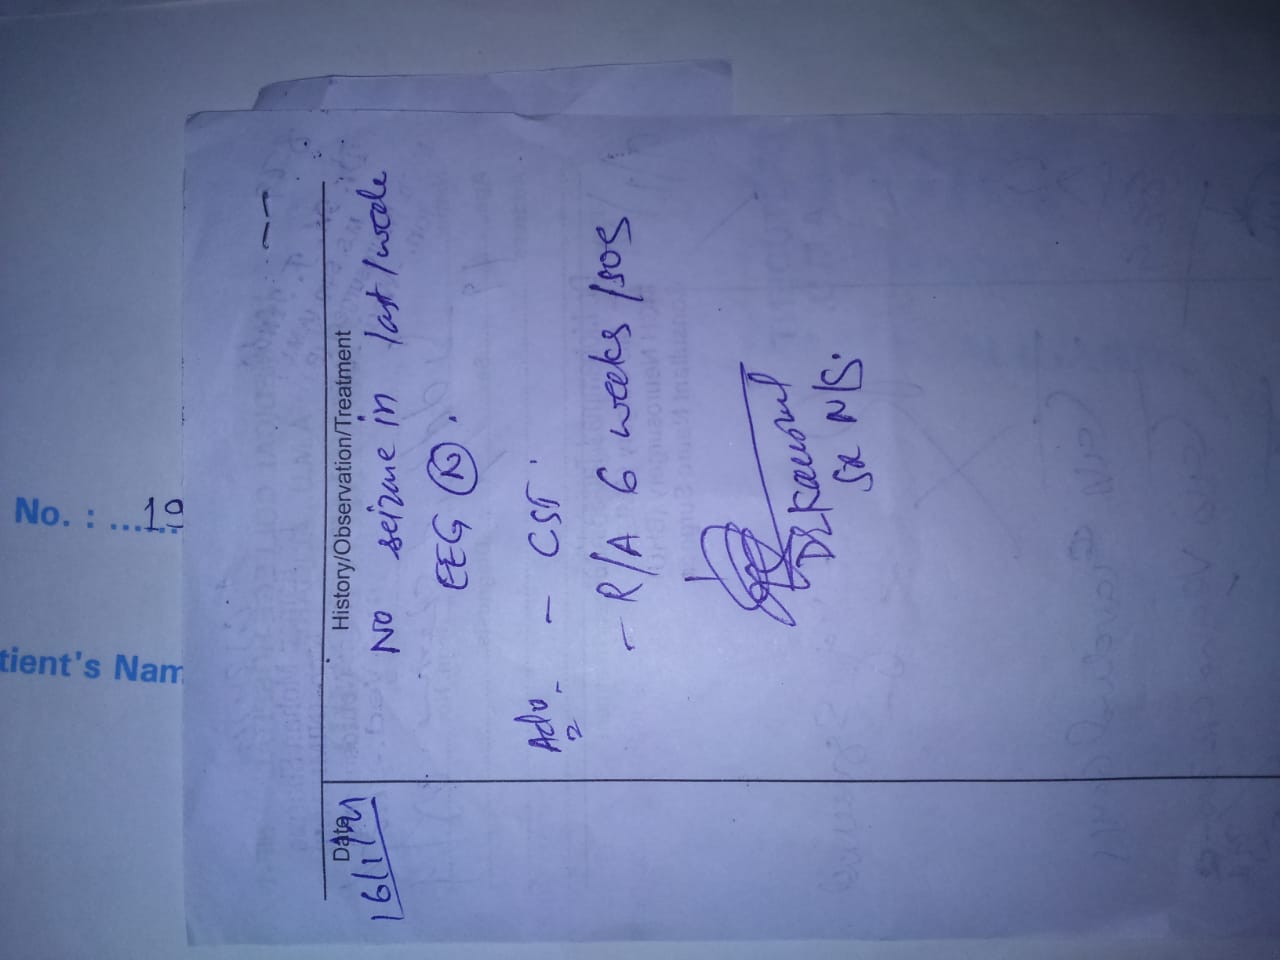 No. : ......19
tient's Nam
Date
History/Observation/Treatment
16/1/21
No seizure in last 1 week
EEG (N).
Adv - - CST.
- R/A 6 weeks / SOS
SR N/S.